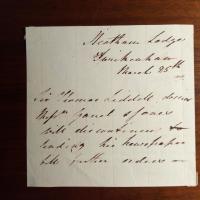 Neatham Lodge
Twickenham
March 25th
Sir Thomas Liddell desires
Messrs
will discontinue
sending his newspaper
till further orders —